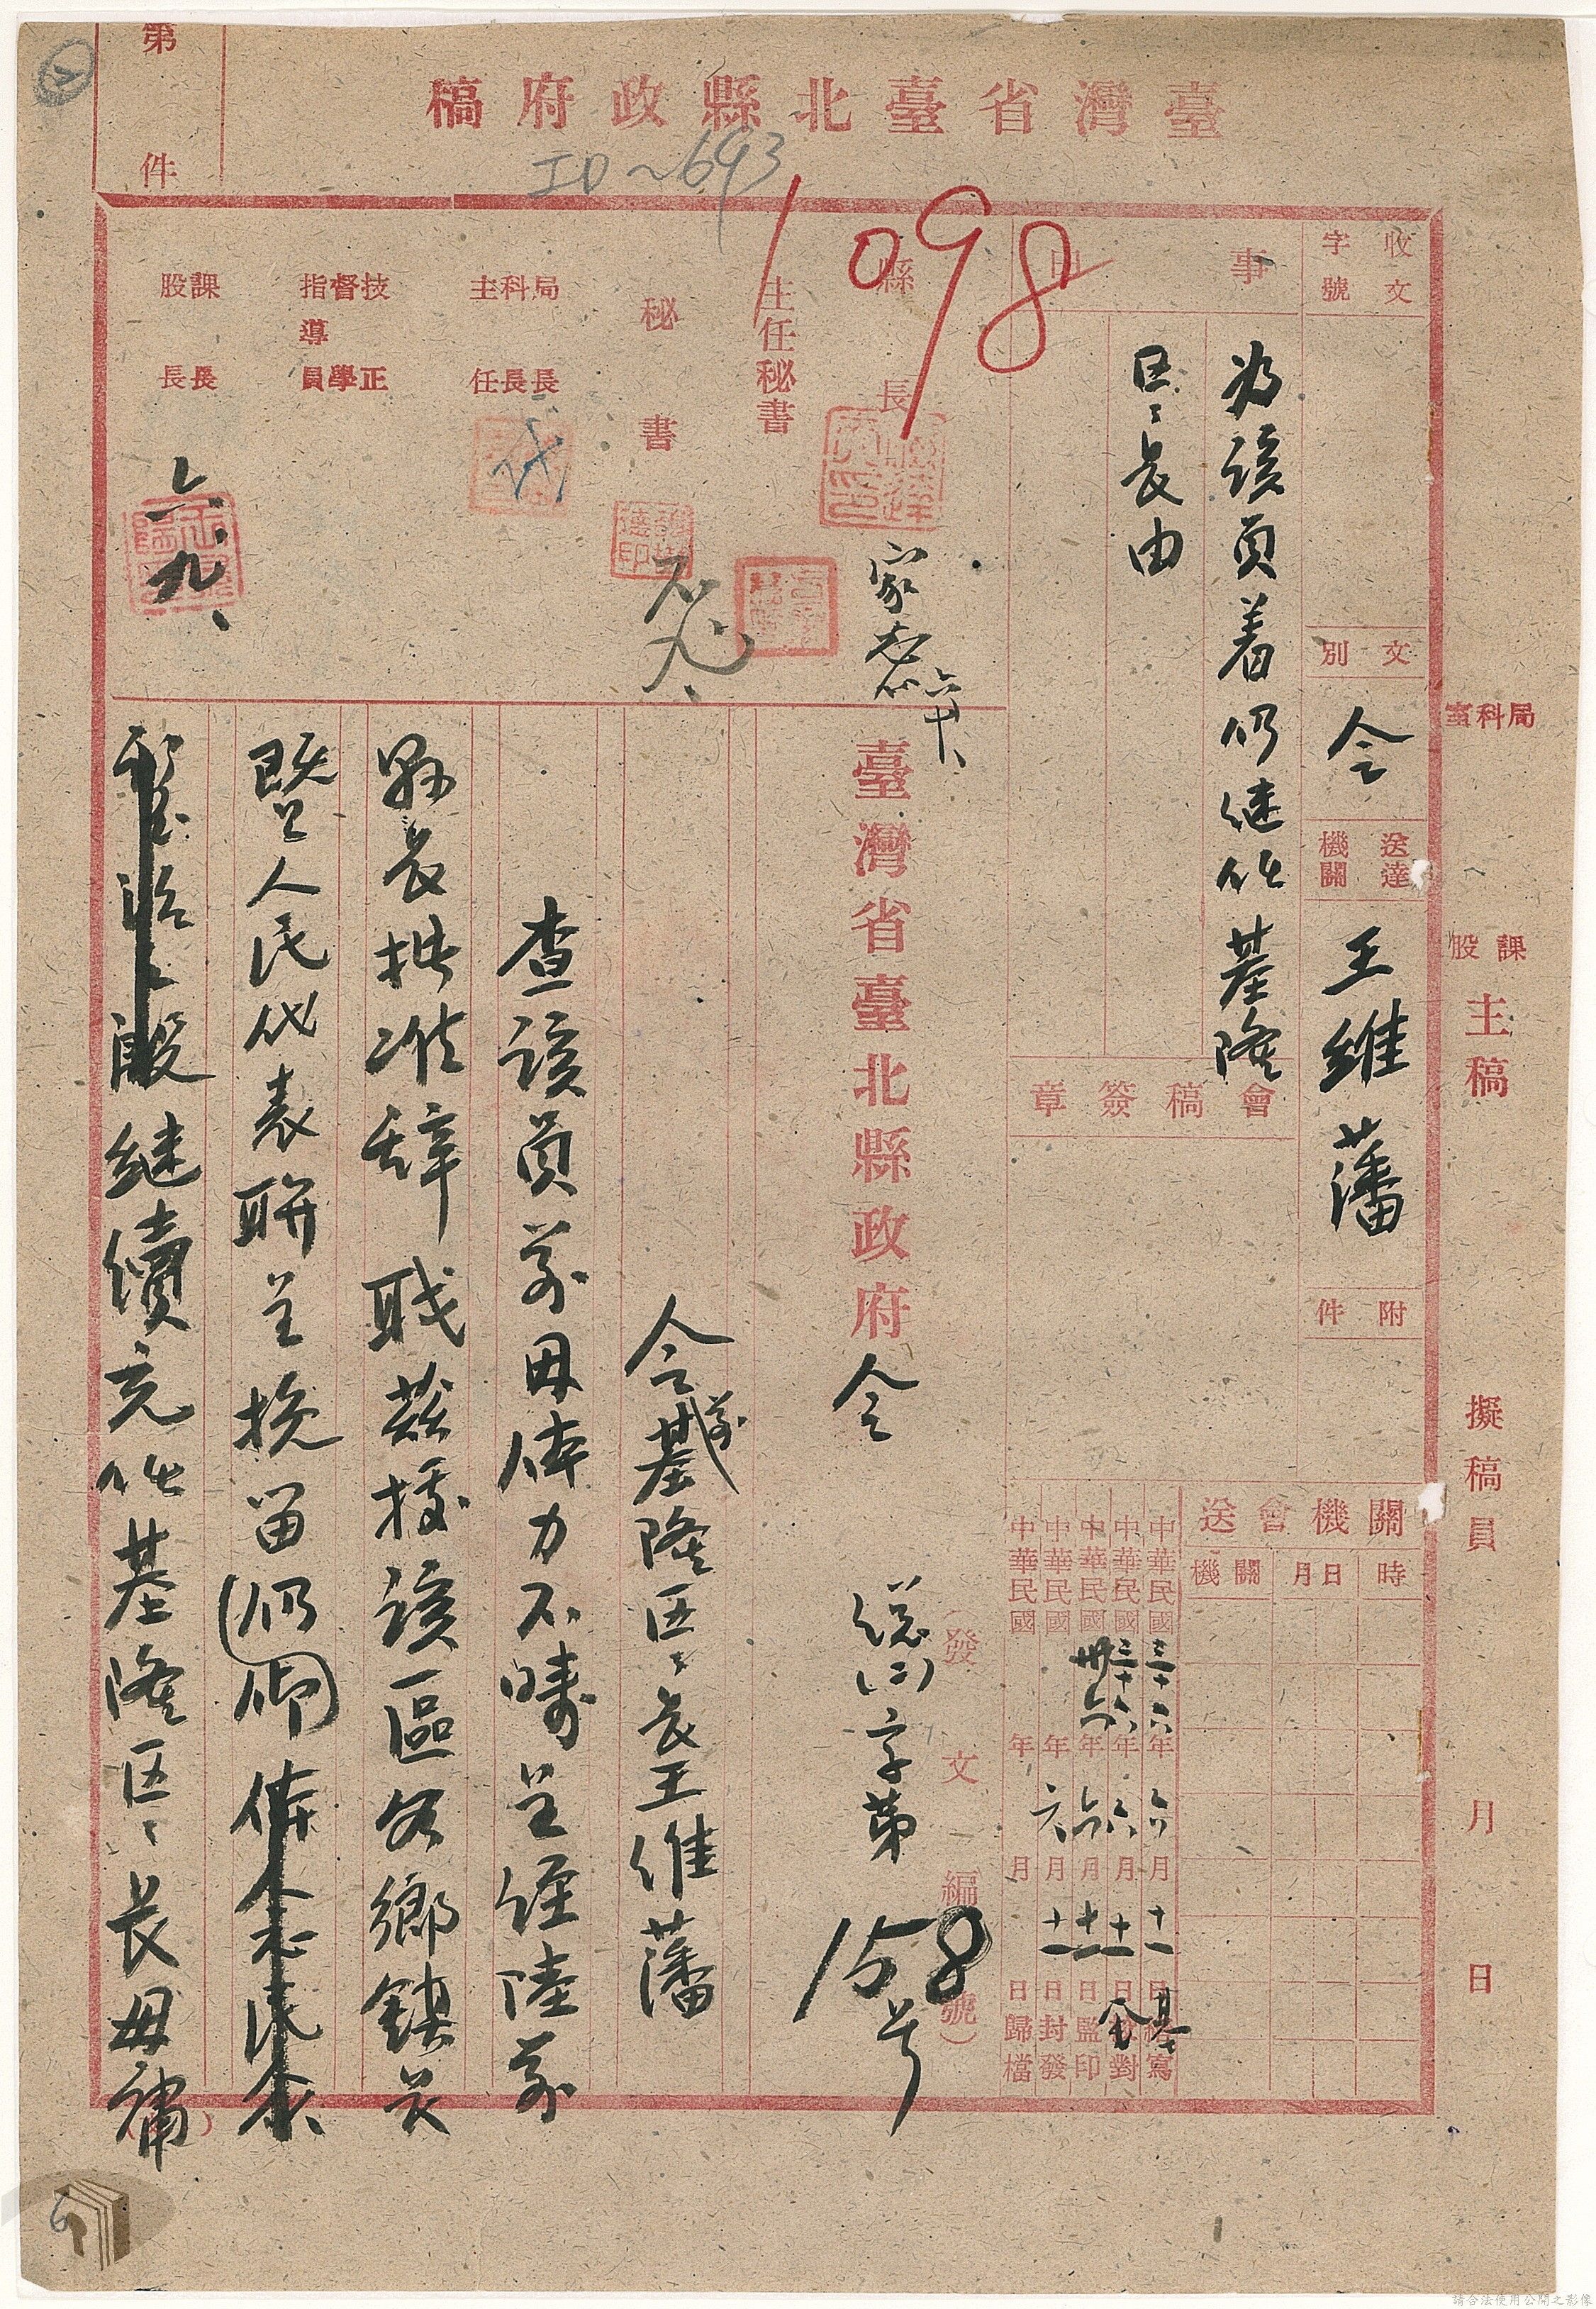 臺灣省臺北縣政府稿
第 件
ID~693
1098
收文
字號
文別
令
送達機關
王維藩
附件
事由
為該員着仍继任基隆
区、長由
會稿簽章
關機會送
時 日月 關機
中華民國三十六年六月十一日繕寫
中華民國三十六年六月十一日校對
中華民國卅六年六月十一日監印
中華民國 年六月十一日封發
中華民國 年 月 日歸檔
縣長
家志六、十、
主任秘書
秘書
局科主
長長任
代
技督指導
正學員
課股
長長
六、九、
局科室
課股
主稿
擬稿員
月 日
臺灣省臺北縣政府令
(發文編號)
總(二)字第1508号
令前基隆区、長王維藩
查該員前因体力不疇呈經陸前
縣長批准辞职茲據該區各鄉鎮長
暨人民代表联呈挽留仍仰
继續充任基隆区、長毋
請合法使用公開之影像